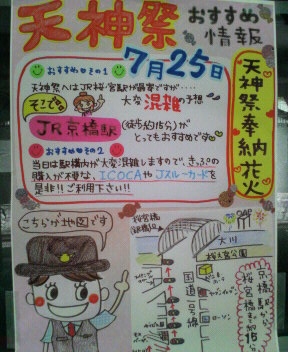 天神祭
おすすめ
情報
7月25日
おすすめその1
天神祭へはJR桜ノ宮駅が最寄ですが‥‥
そこで
大変混雑予想
JR京橋駅(徒歩約15分)が
とってもおすすめです
おすすめその2
当日は駅構内が大変混雑しますので、きっぷの
購入が不要な、ICOCAやJスルーカードを
是非!!ご利用下さい!!
天神祭奉納花火
こちらが地図です
桜宮橋
大川
桜之宮公園
国道1号線
京橋駅から